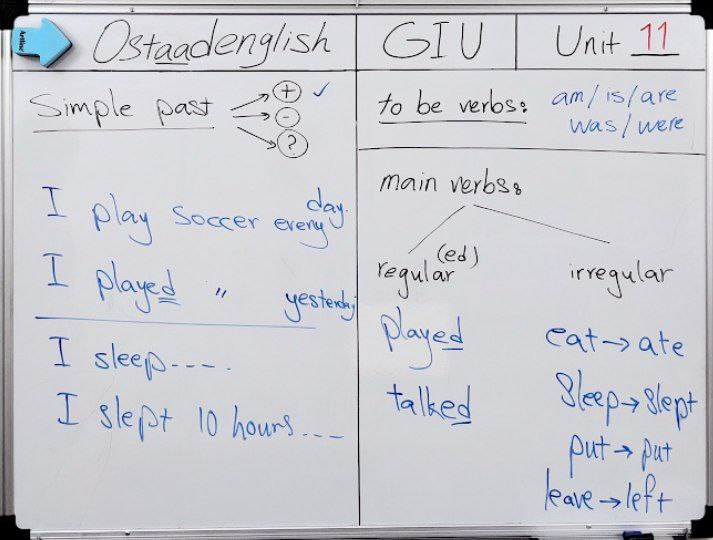 Ostaadenglish
GIU
Unit 11
Simple past
+ ✓
-
?
I play soccer every day.
I played " yesterday
I sleep----.
I slept 10 hours---
to be verbs: am/is/are
was/were
main verbs:
regular (ed)
irregular
played
talked
eat→ate
Sleep→slept
put→put
leave→left